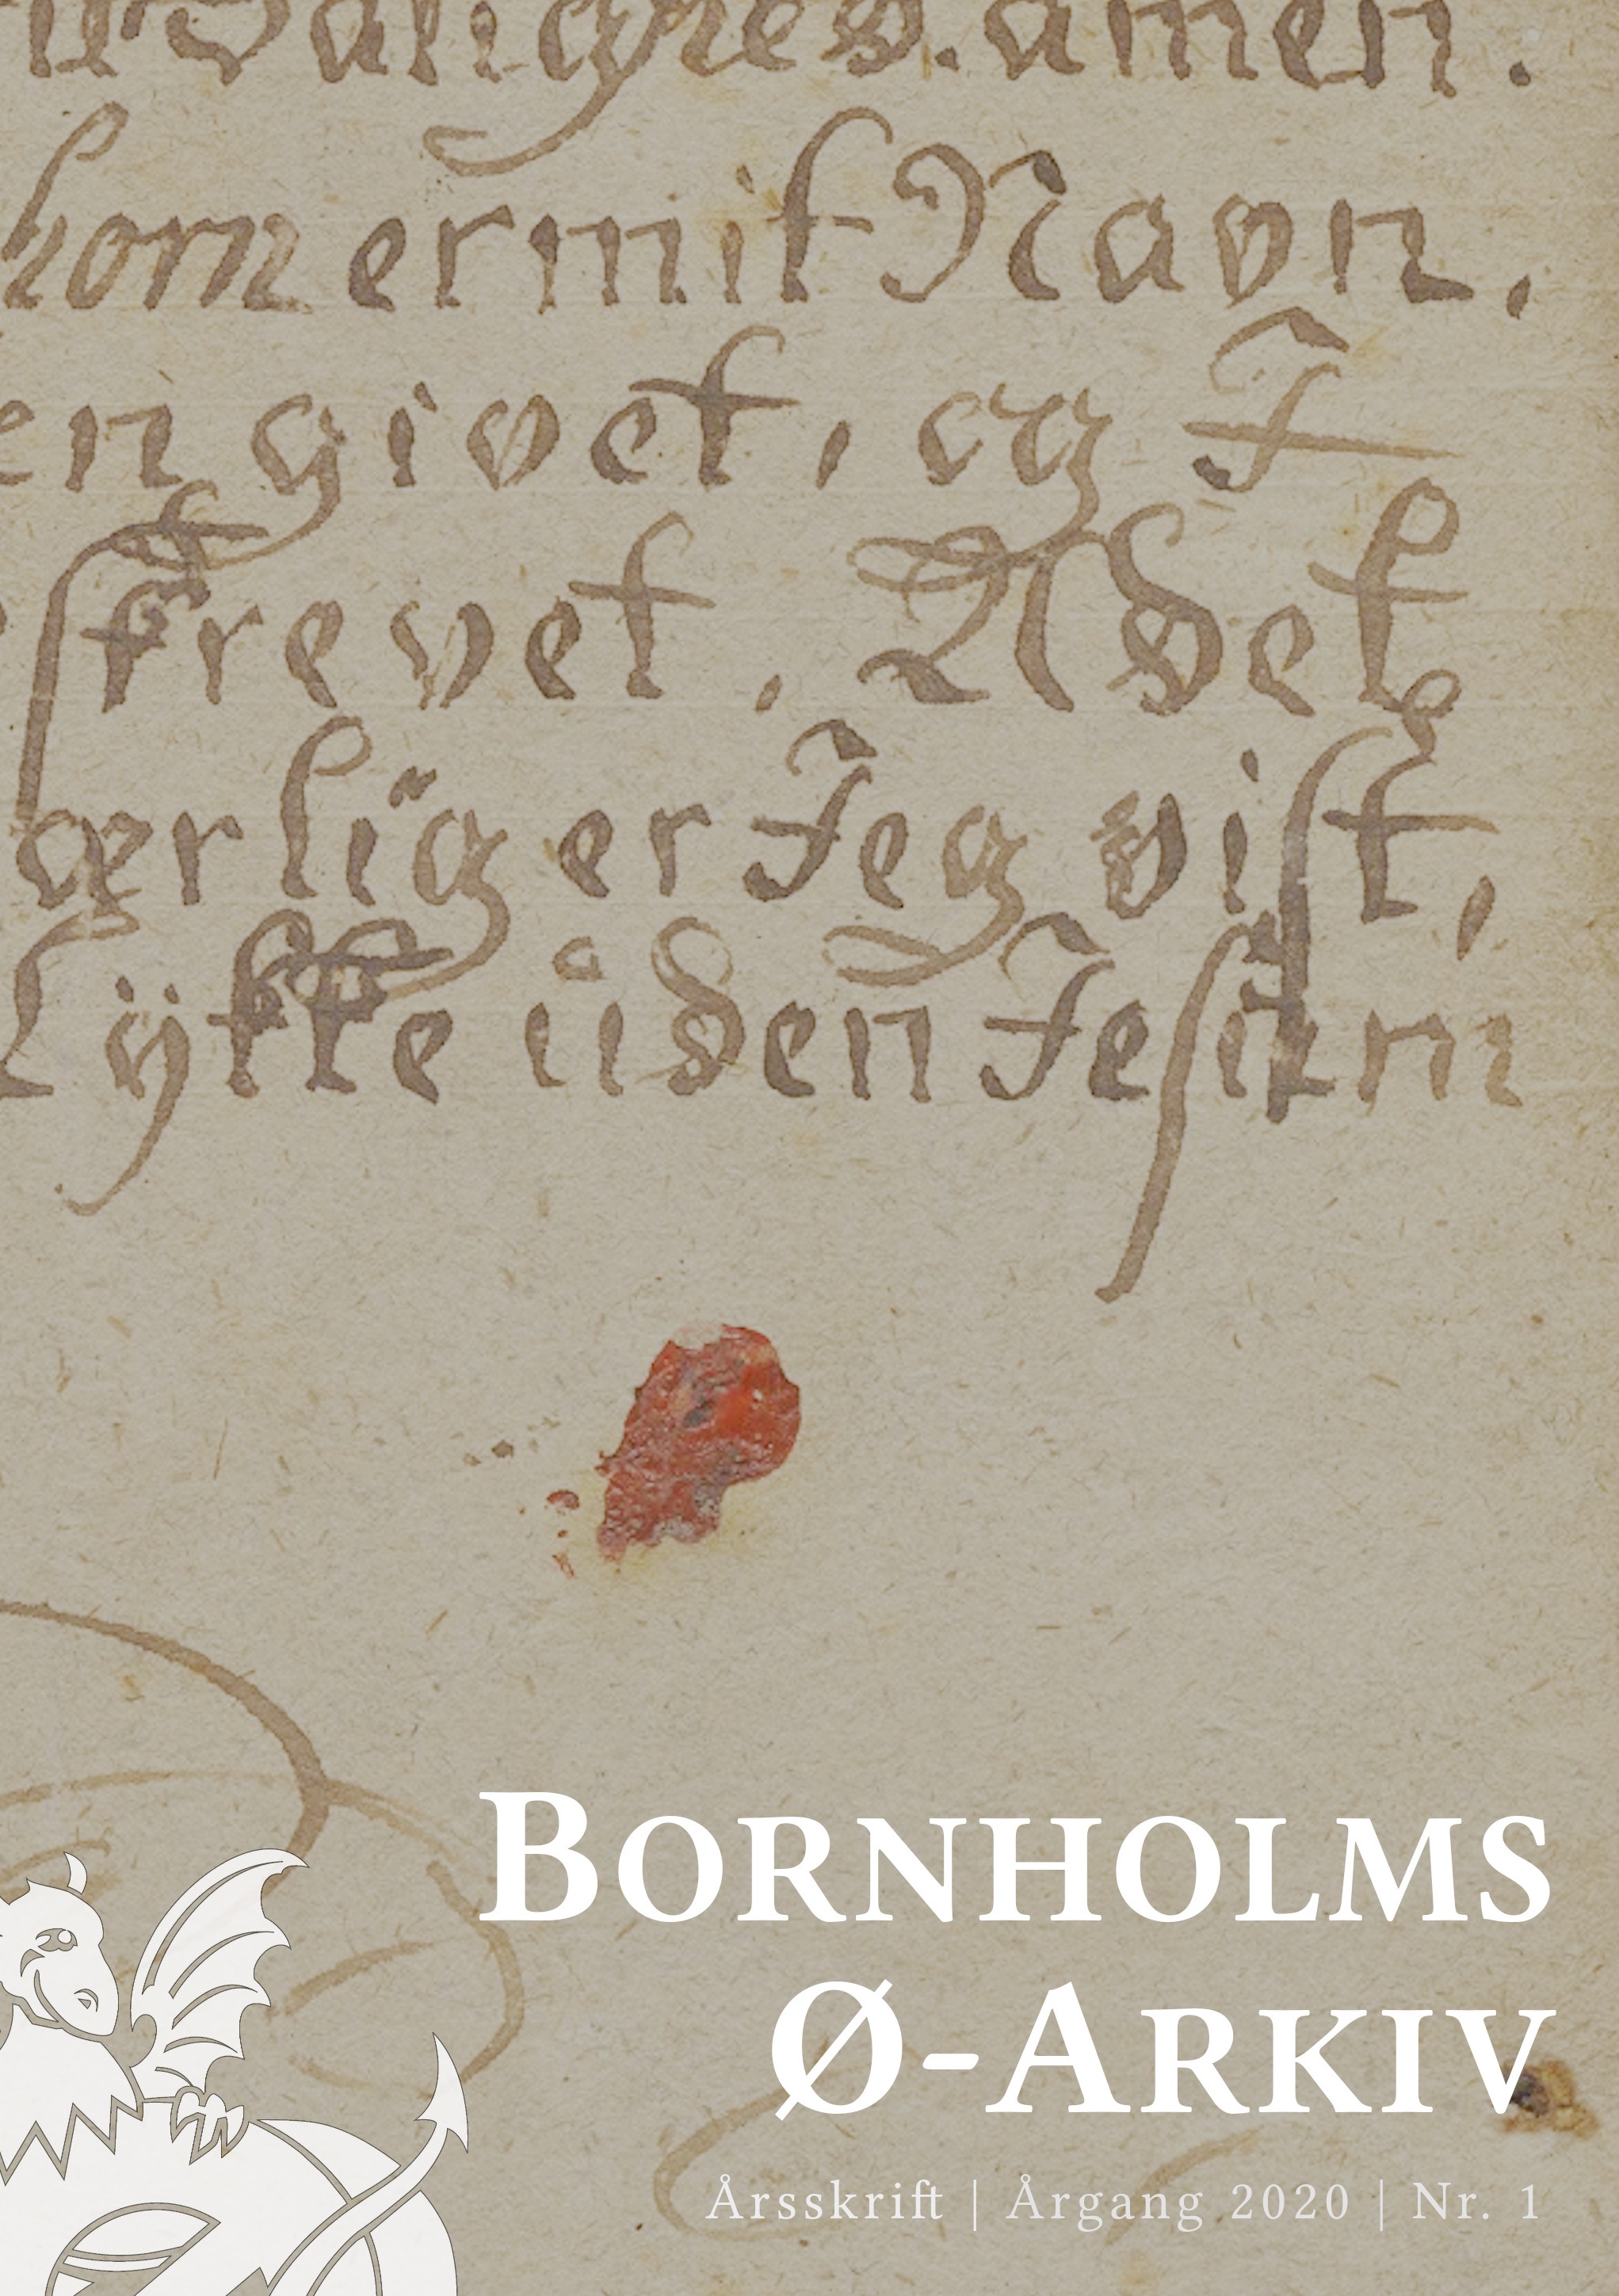 amen.
horn er mit Navn.
en givet, og J
skrevet. Adel
ærlig er Jeg vist,
Lÿkke uden Jesum
Bornholms
Ø-Arkiv
Årsskrift | Årgang 2020 | Nr. 1